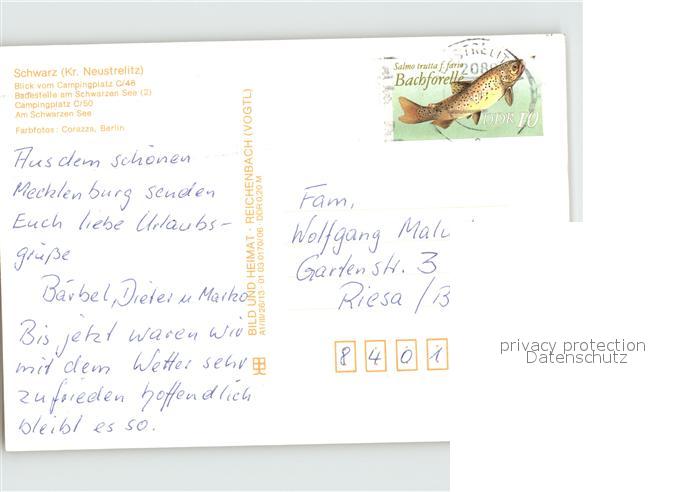 Schwarz (Kr. Neustrelitz)
Blick vom Campingplatz C/46
Badestelle am Schwarzen See (2)
Campingplatz C/50
Am Schwarzen See
Farbfotos: Corazza, Berlin
Aus dem schönen
Mecklenburg senden
Euch liebe Urlaubs-
grüße
Bärbel, Dieter u Marko
Bis jetzt waren wir
mit dem Wetter sehr
zufrieden hoffendlich
bleibt es so.
BILD UND HEIMAT · REICHENBACH (VOGTL)
A1/III/26/13 · 01 03 0170/06 · DDR 0,20 M
Salmo trutta f. fario
Bachforelle
DDR 10
STRELITZ
2080
Fam.
Wolfgang
Gartenstr. 3
Riesa /B
8 4 0 1
privacy protection
Datenschutz